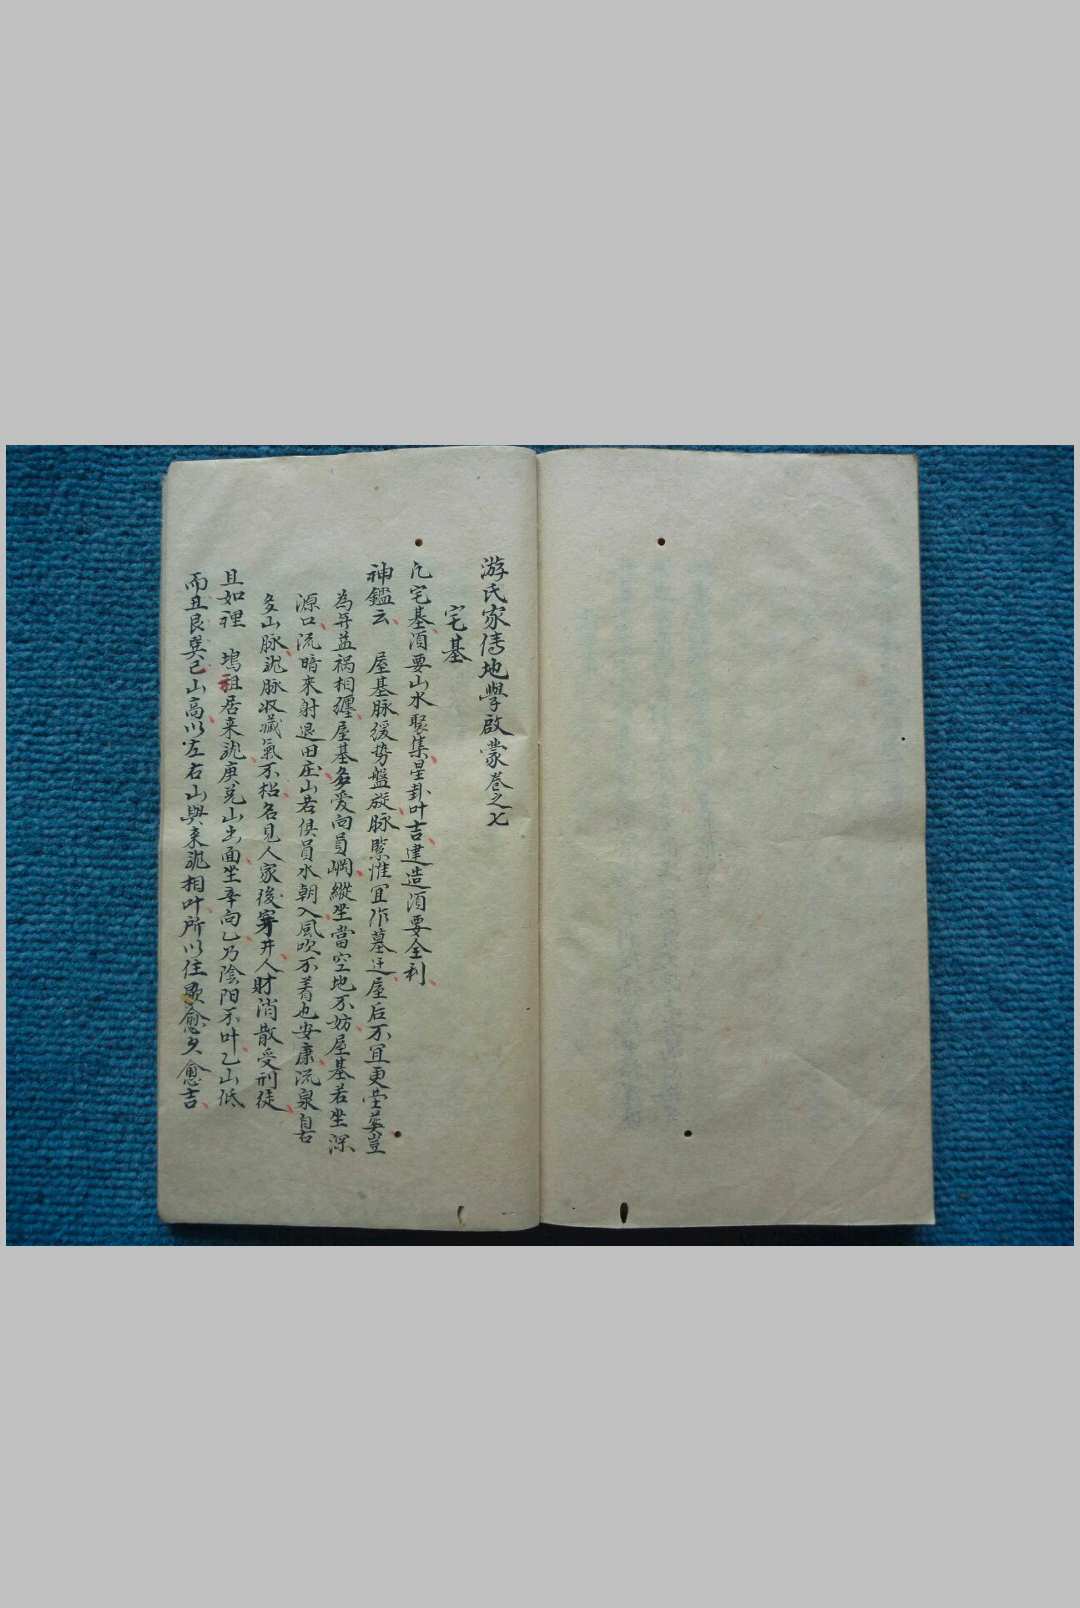 游氏家傳地學啟蒙卷之七
宅基
凡宅基須要山水聚集星卦叶吉建造須要全利
神鑑云 屋基脉緩势盤旋脉緊惟宜作墓迁屋后不冝更塋塟豈
為无益祸相纒屋基多爱向員崗縱坐當空地不妨屋基若坐深
源口流暗来射退田庄山若俱員水朝入風吹不着也安康流泉自古
多山脉 脉收藏氣不 名見人家後穿井人財消散受刑徒
且如裡 塢祖居来 庚兑山出面坐辛向乙乃陰阳不叶乙山低
而丑艮巽巳山高以左右山與来 相叶所以住 愈久愈吉